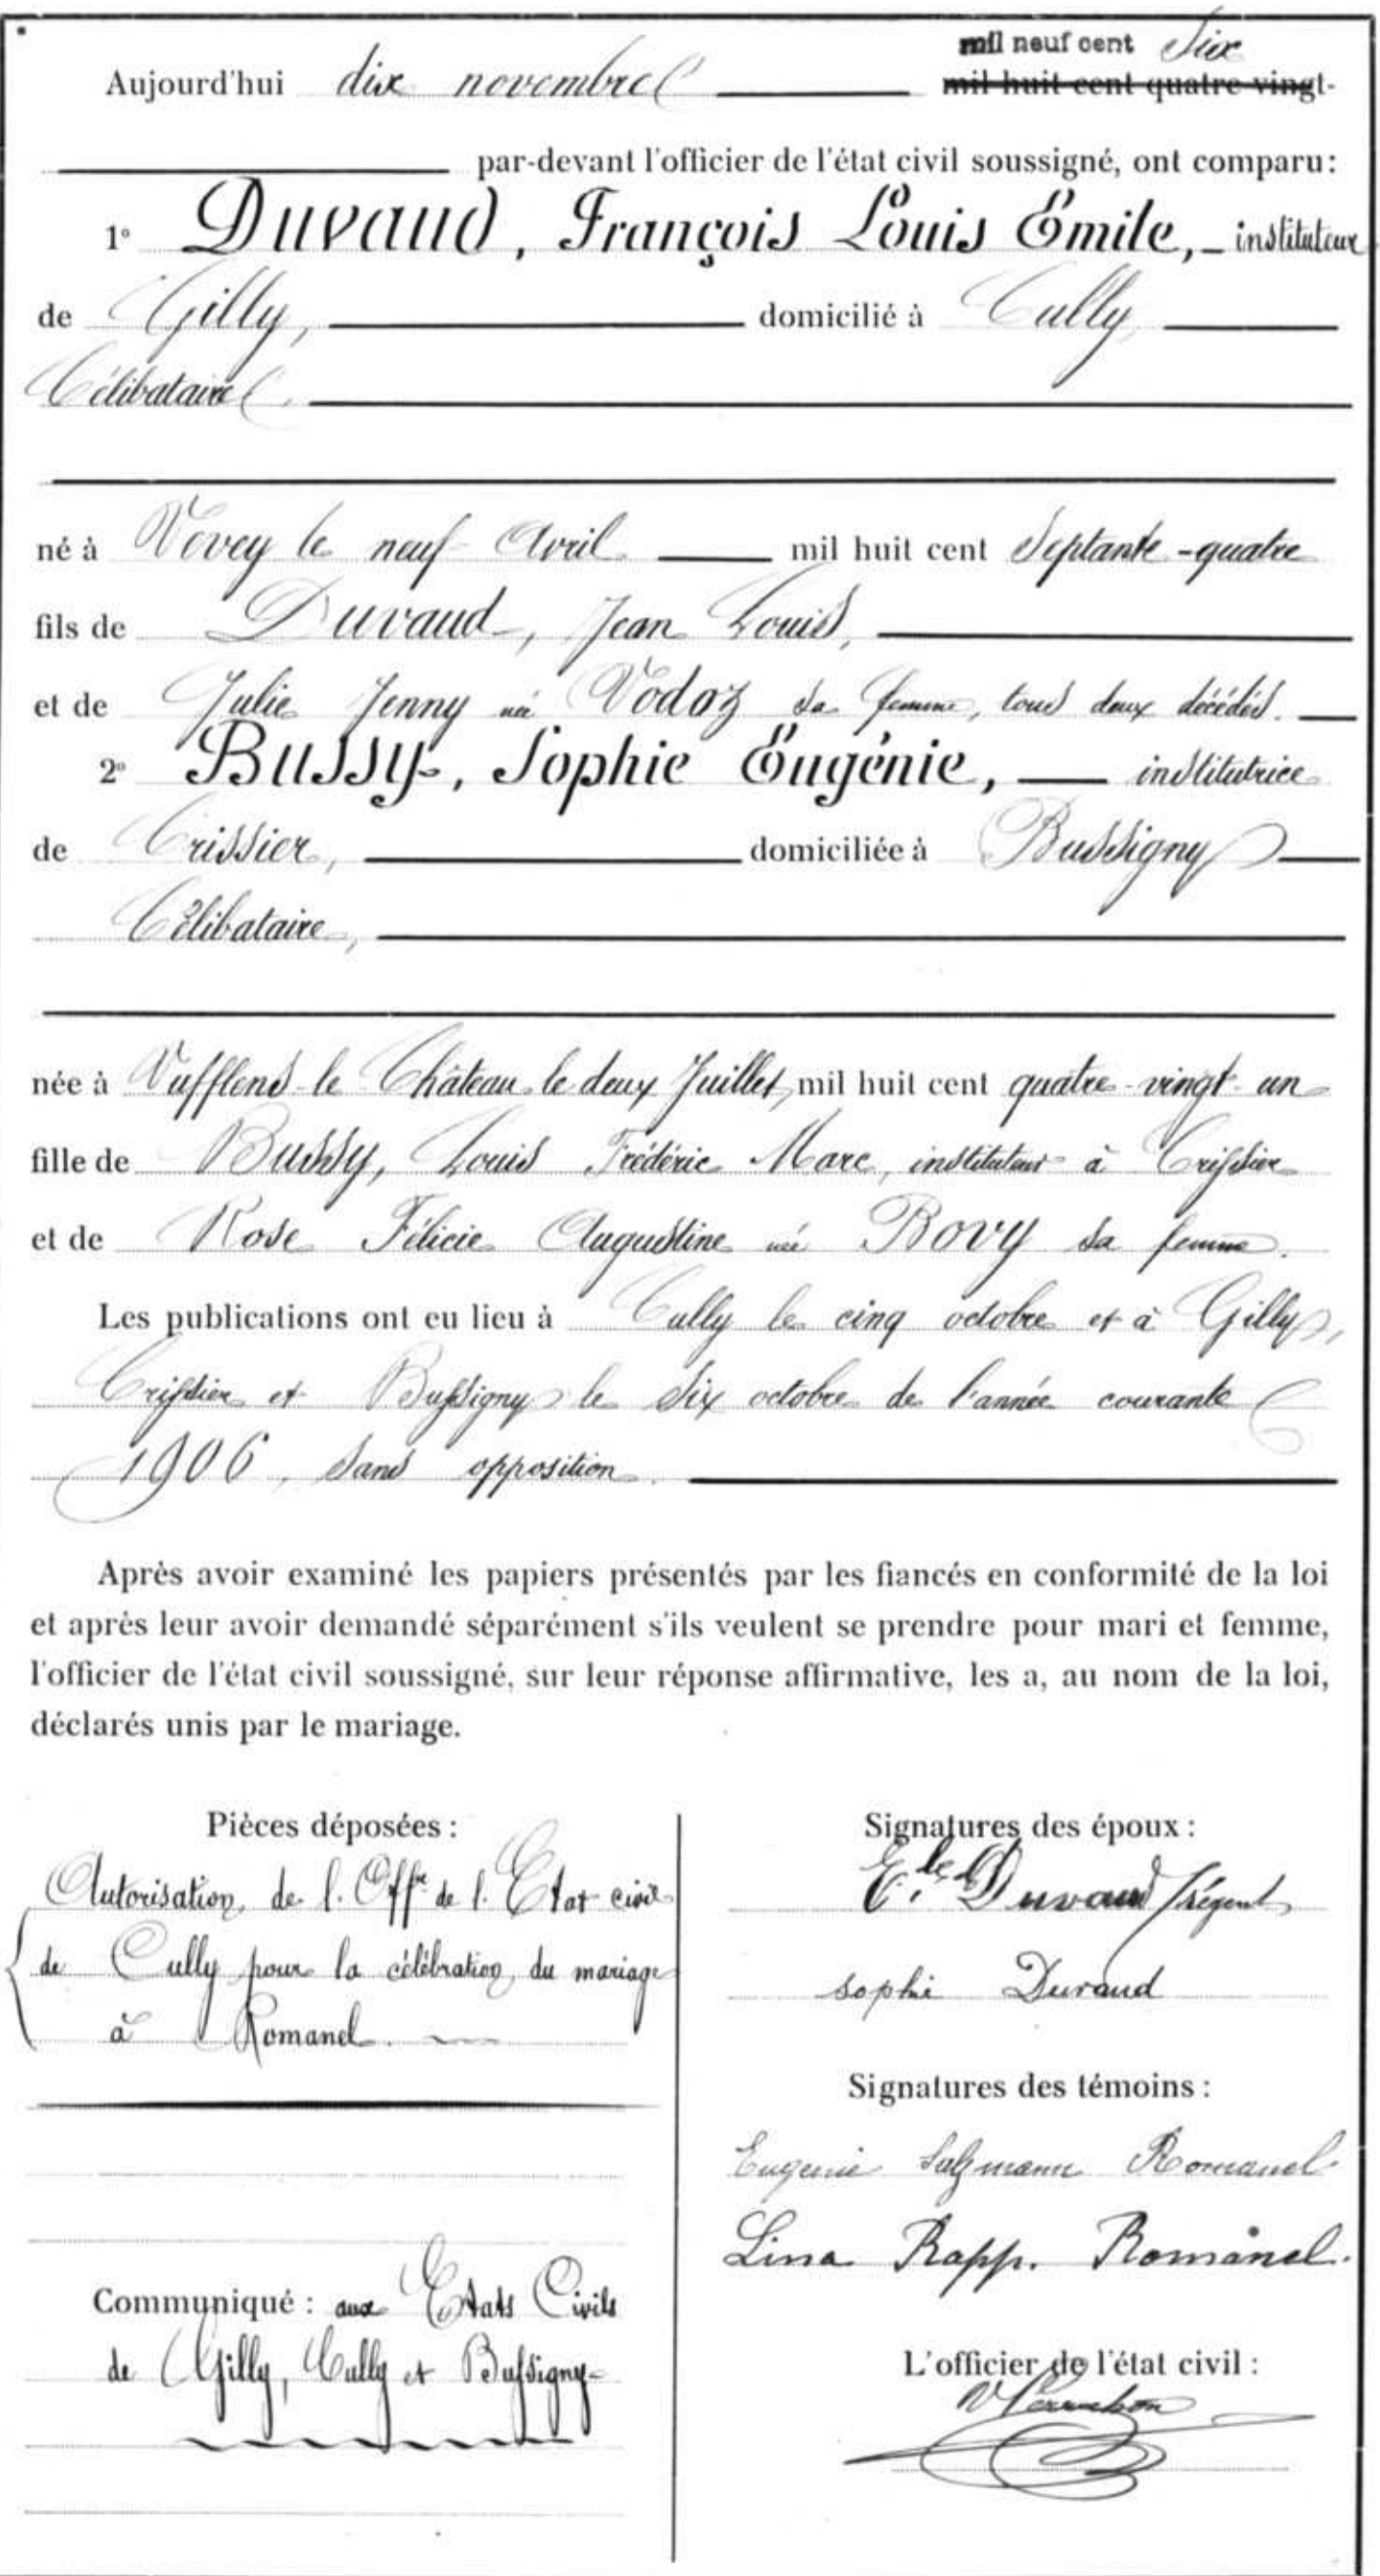 mil neuf cent Six
Aujourd'hui dix novembre mil huit cent quatre-vingt-
par-devant l'officier de l'état civil soussigné, ont comparu:
1° Duvaud, François Louis Emile, instituteur
de Gilly, domicilié à Cully,
Célibataire
né à Vevey le neuf Avril mil huit cent Septante-quatre
fils de Duvaud, Jean Louis,
et de Julie Jenny née Vodoz sa femme, tous deux décédés.
2° Bussy, Sophie Eugénie, institutrice
de Crissier, domiciliée à Bussigny
Célibataire,
née à Vufflens le Château le deux Juillet, mil huit cent quatre-vingt un
fille de Bussy, Louis Frédéric Marc, instituteur à Crissier
et de Rose Félicie Augustine née Bovy sa femme.
Les publications ont eu lieu à Cully le cinq octobre et à Gilly,
Crissier et Bussigny le six octobre de l'année courante
1906, sans opposition.
Après avoir examiné les papiers présentés par les fiancés en conformité de la loi
et après leur avoir demandé séparément s'ils veulent se prendre pour mari et femme,
l'officier de l'état civil soussigné, sur leur réponse affirmative, les a, au nom de la loi,
déclarés unis par le mariage.
Pièces déposées :
Autorisation de l. Off.re de l. Etat civil
de Cully pour la célébration du mariage
à Romanel.
Communiqué : aux Etats Civils
de Gilly, Cully et Bussigny
Signatures des époux :
E.le Duvaud régent
Sophie Duvaud
Signatures des témoins :
Eugenie Salzmann Romanel
Lina Rapp. Romanel.
L'officier de l'état civil :